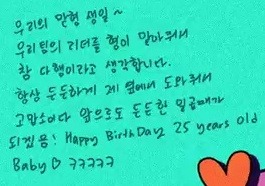 우리의 맏형 생일~
우리팀의 리더를 형이 맡아줘서
참 다행이라고 생각합니다.
항상 든든하게 제 옆에서 도와줘서
고맙소이다 앞으로도 든든한 일곱때가
되겠용! Happy BirthDay 25 years old
Baby♡ ㅋㅋㅋㅋㅋ